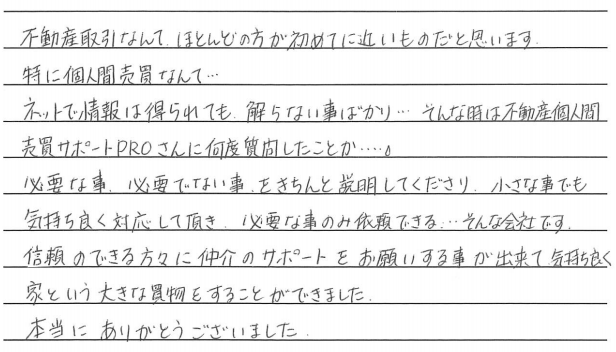 不動産取引なんて、ほとんどの方が初めてに近いものだと思います。
特に個人間売買なんて…
ネットで情報は得られても、解らない事ばかり… そんな時は不動産個人間
売買サポートPROさんに何度質問したことか……。
必要な事、必要でない事、をきちんと説明してくださり、小さな事でも
気持ち良く対応して頂き、必要な事のみ依頼できる…そんな会社です。
信頼のできる方々に仲介のサポートをお願いする事が出来て気持ち良く
家という大きな買物をすることができました。
本当にありがとうございました。